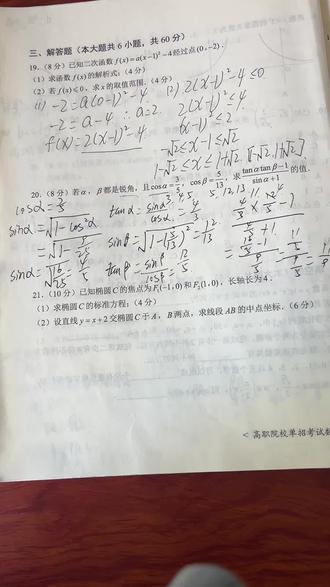 三、解答题（本大题共 6 小题，共 60 分）
19.（8分）已知二次函数 f(x)=a(x-1)²-4 经过点(0,-2).
（1）求函数 f(x) 的解析式；（4分）
（2）若 f(x)≤0，求 x 的取值范围.（4分）
(1) -2=a(0-1)²-4
-2=a-4 ∴a=2
f(x)=2(x-1)²-4
(2) 2(x-1)²-4≤0
2(x-1)²≤4
(x-1)²≤2
-√2≤x-1≤√2
1-√2≤x≤1+√2 [1-√2,1+√2]
20.（8分）若α，β都是锐角，且cosα=3/5，cosβ=5/13，求 (tanα tanβ-1)/(sinα+1) 的值.
cosα=3/5
sinα=√1-cos²α
=√1-9/25
sinα=√16/25=4/5
tanα=sinα/cosα=4/3
3,4,5 5,12,13
sinβ=√1-(5/13)²=12/13
tanβ=sinβ/cosβ=12/5
21.（10分）已知椭圆 C 的焦点为 F₁(-1,0) 和 F₂(1,0)，长轴长为 4.
（1）求椭圆 C 的标准方程；（4分）
（2）设直线 y=x+2 交椭圆 C 于 A，B 两点，求线段 AB 的中点坐标.（6分）
< 高职院校单招考试数